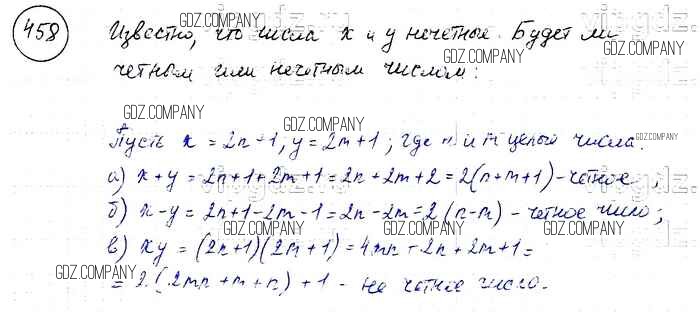 458 Известно, что числа x и y нечетные. Будет ли
четным или нечетным числом:
Пусть x = 2n+1, y = 2m+1; где n и m целые числа.
а) x+y = 2n+1+2m+1 = 2n+2m+2 = 2(n+m+1) - четное;
б) x-y = 2n+1-2m-1 = 2n-2m = 2(n-m) - четное число;
в) xy = (2n+1)(2m+1) = 4mn+2n+2m+1 =
= 2(2mn+m+n)+1 - не четное число.
GDZ.COMPANY